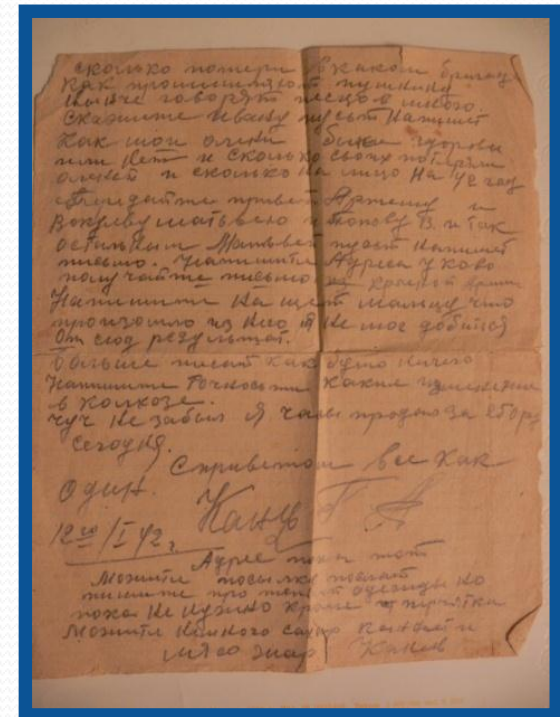 сколько потери в каком бригаде
Как промишляют пушнину
нынче говорят песцов много.
Скажите Ивану пусть напишет
Как мои олени быки здоровы
или нет и сколько своих потеряли
оленей и сколько на лицо на 42 год
привет Артему и
Вокуеву и Попову В. и так
остальным Матвей пусть напишет
письмо. Напишите Адреса у ково
получайте письмо из красной Армии
Напишите на щет мальцу что
произошло из Него Я Не мог добится
От сюд результат.
больше писат как будто Ничего
Напишите какие изменения
в колхозе.
чуч Не забыл Я часы продаю за
сегодня.
Сприветом все как
один. Канев Г А
12го/I 42г
Адрес пока тот
Можите посылку послат
пишите про одежды но
пока Не нужно кроме
Можите Немного сахар
мясо Канев